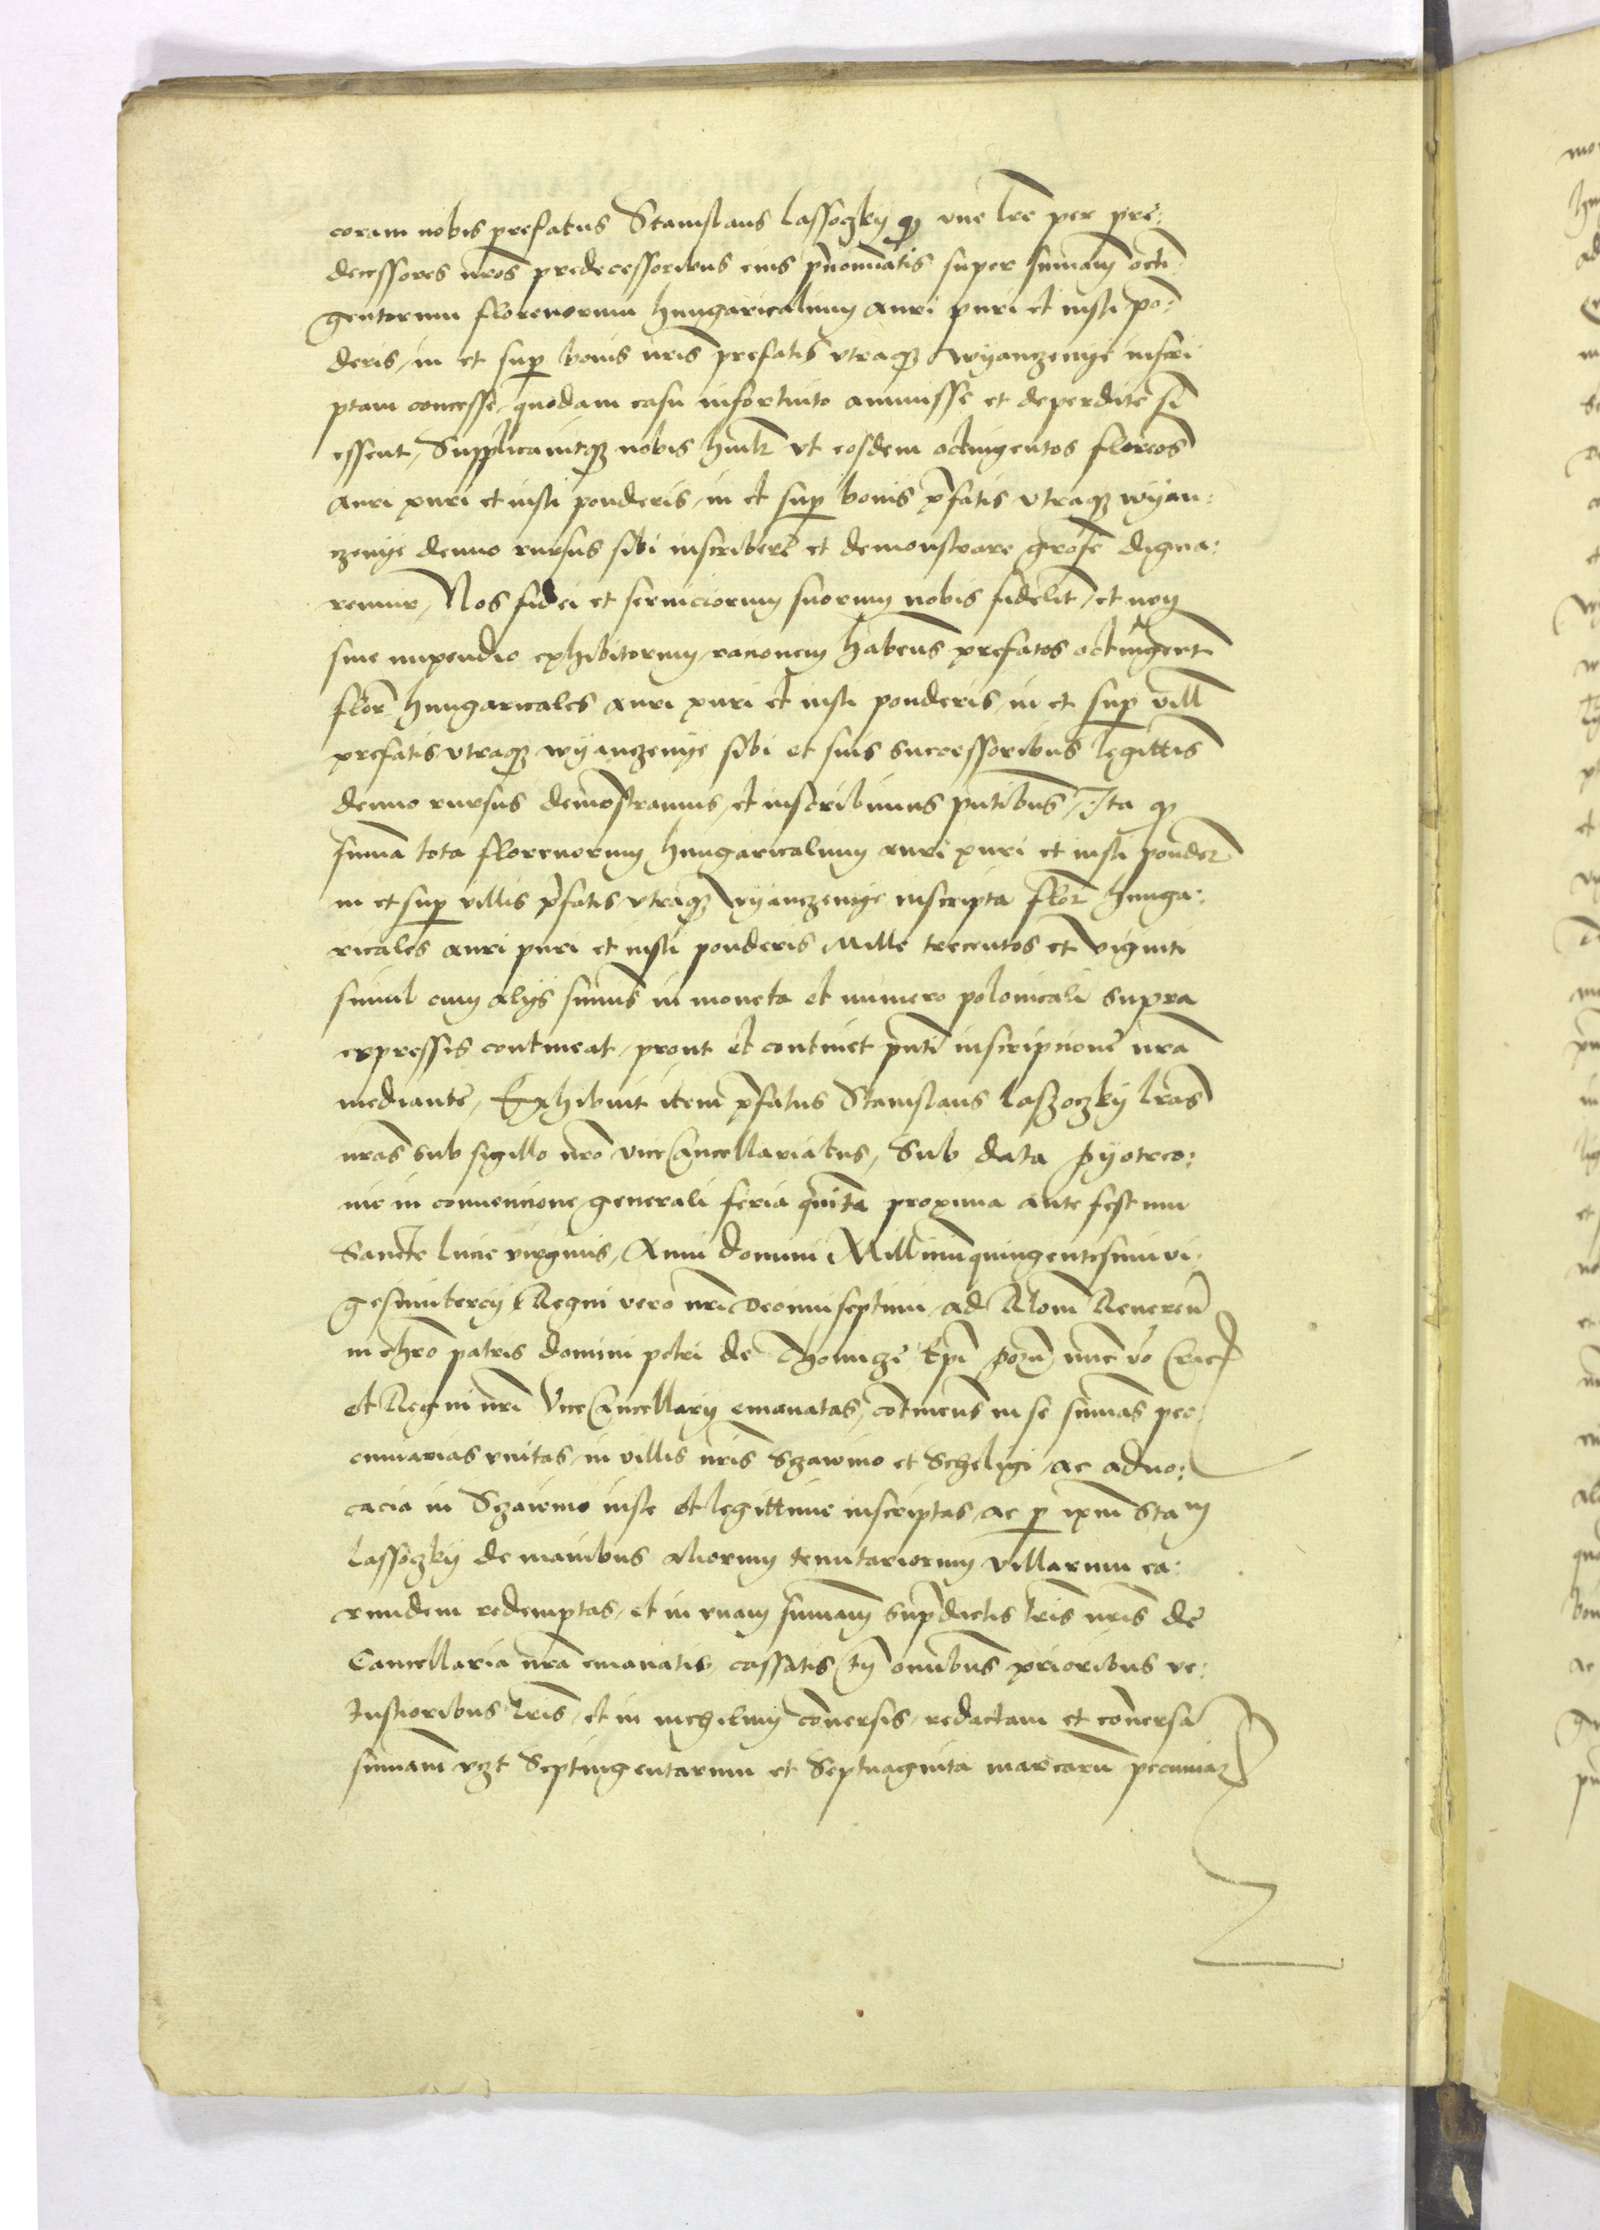 coram nobis prefatus Stanislaus Lassoczky qz une lre per pre:
decessores nros predecessoribus eius prenominatis super sumam octi
gentorum florenorum hungaricalium auri puri et iusti po:
deris, in et sup bonis nris prefatis utraqz Wyanczenye inscri
ptam concesse, quodam casu infortuito amisse et deperdite si
essent, Supplicavitqz nobis hmlr ut eosdem octingentos floreos
auri puri et iusti ponderis, in et sup bonis pfatis utraqz wyan:
czenye denuo rursus sibi inscribere et demonstrare grose digna:
remur, Nos fidei et serviciorum suorum nobis fidelit, et non
sine impendio exhibitorum, racionem habens prefatos octingent
flor hungaricales auri puri et iusti ponderis, in et sup vill
prefatis utraqz wyanczenye sibi et suis successoribus legittis
denuo rursus demostramus, et inscribimus pntibus, Ita qz
suma tota florenorum hungaricalium auri puri et iusti ponder
in et sup villis pfatis utraqz wyanczenye inscripta flor hunga:
ricales auri puri et iusti ponderis Mille trecentos et viginti
simul cum alys sumis in moneta et numero polonicali supra
expressis contineat, prout et continet pnti inscripcione nra
mediante, Exhibuit item pfatus Stanislaus Laszoczky lras
nras sub sigillo nro viceCancellariatus, Sub data Pyotrco:
vie in convencione generali feria quinta proxima ante festum
Sancte lucie virginis, Anni domini Millimiquingentesimi vi
gesimitercy Regni vero nri decimiseptimi, ad Rlom Reveren
in chro patris domini petri de Thomicze Epi pozn nunc vo Crac
et Regni nri ViceCancellary emanatas, cotinens in se sumas pec
cuniarias unitas, in villis nris Szawino et Schelygi, ac advo:
cacia in Szawino iuste et legittime inscriptas, ac p ipm Stam
Lassoczky de manibus aliorum tenutariorum villarum ea:
rundem redemptas, et in unam sumam supradictis lris nris de
Cancellaria nra emanatis, cassatis tn omibus prioribus ve:
tustioribus lris, et in nichilum conversis, redactam et conversa
sumam vzt Septingentarum et Septuaginta marcaru pecuniar